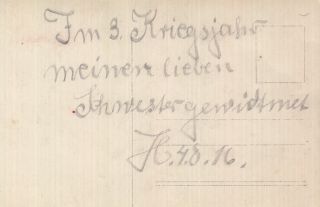 Im 3. Kriegsjahr
meinen lieben
Schwester gewidmet
H. 4.8.16.